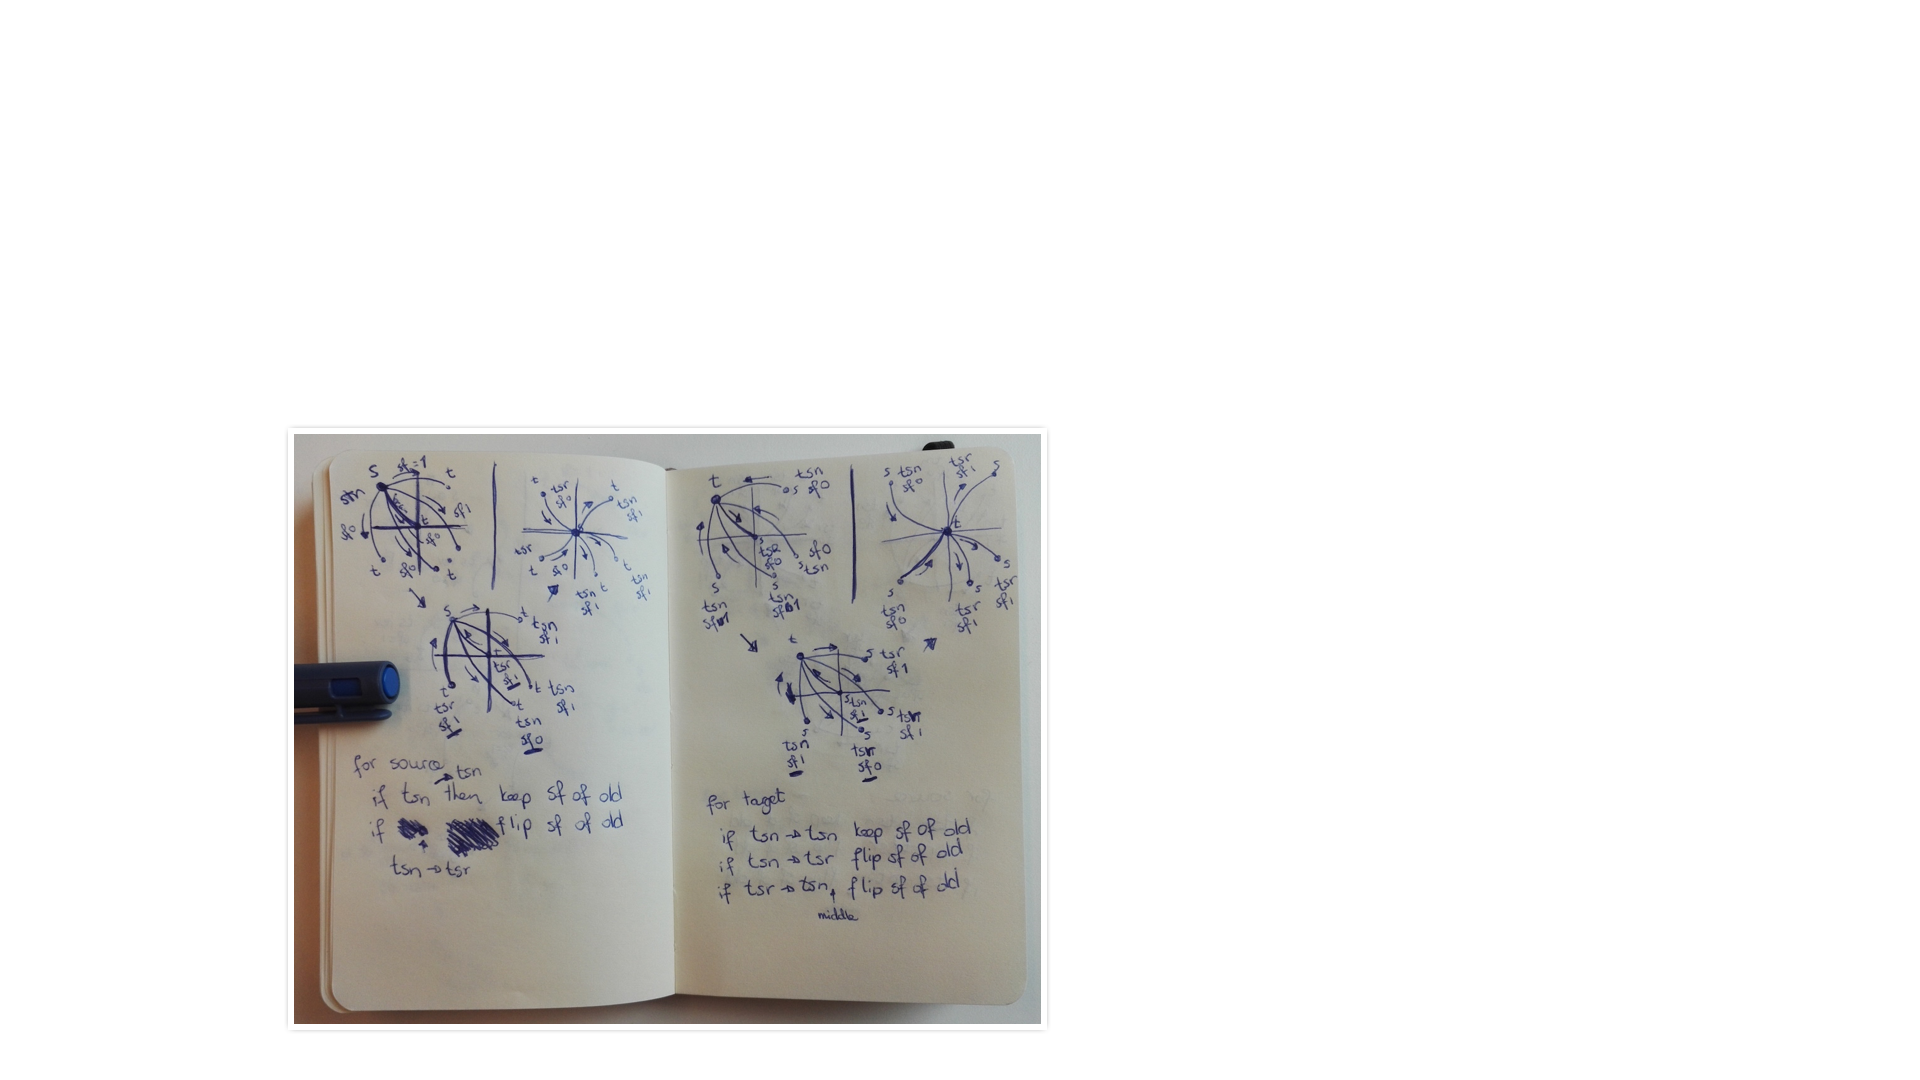 S
sf=1
t
tsn
sf1
sf0
t
sf0
t
sf0
t
t
tsr
sf0
t
tsn
sf1
tsr
t
sf0
t
tsn
sf1
t
tsn
sf1
s
t
tsn
sf1
t
tsr
sf1
t
tsr
sf1
t
tsn
sf0
t
tsn
sf1
for source
tsn
if tsn then keep sf of old
if flip sf of old
tsn → tsr
t
tsn
s sf0
s
tsr
sf0
sf0
s tsn
s
tsn
sf1
s
tsn
sf1
s tsn
sf0
tsr
sf1
s
t
s
tsn
sf0
s
tsr
sf1
s
tsr
sf1
t
s tsr
sf1
s
tsn
sf1
s tsr
sf1
s
tsn
sf1
s
tsr
sf0
for target
if tsn → tsn keep sf of old
if tsn → tsr flip sf of old
if tsr → tsn, flip sf of old
middle